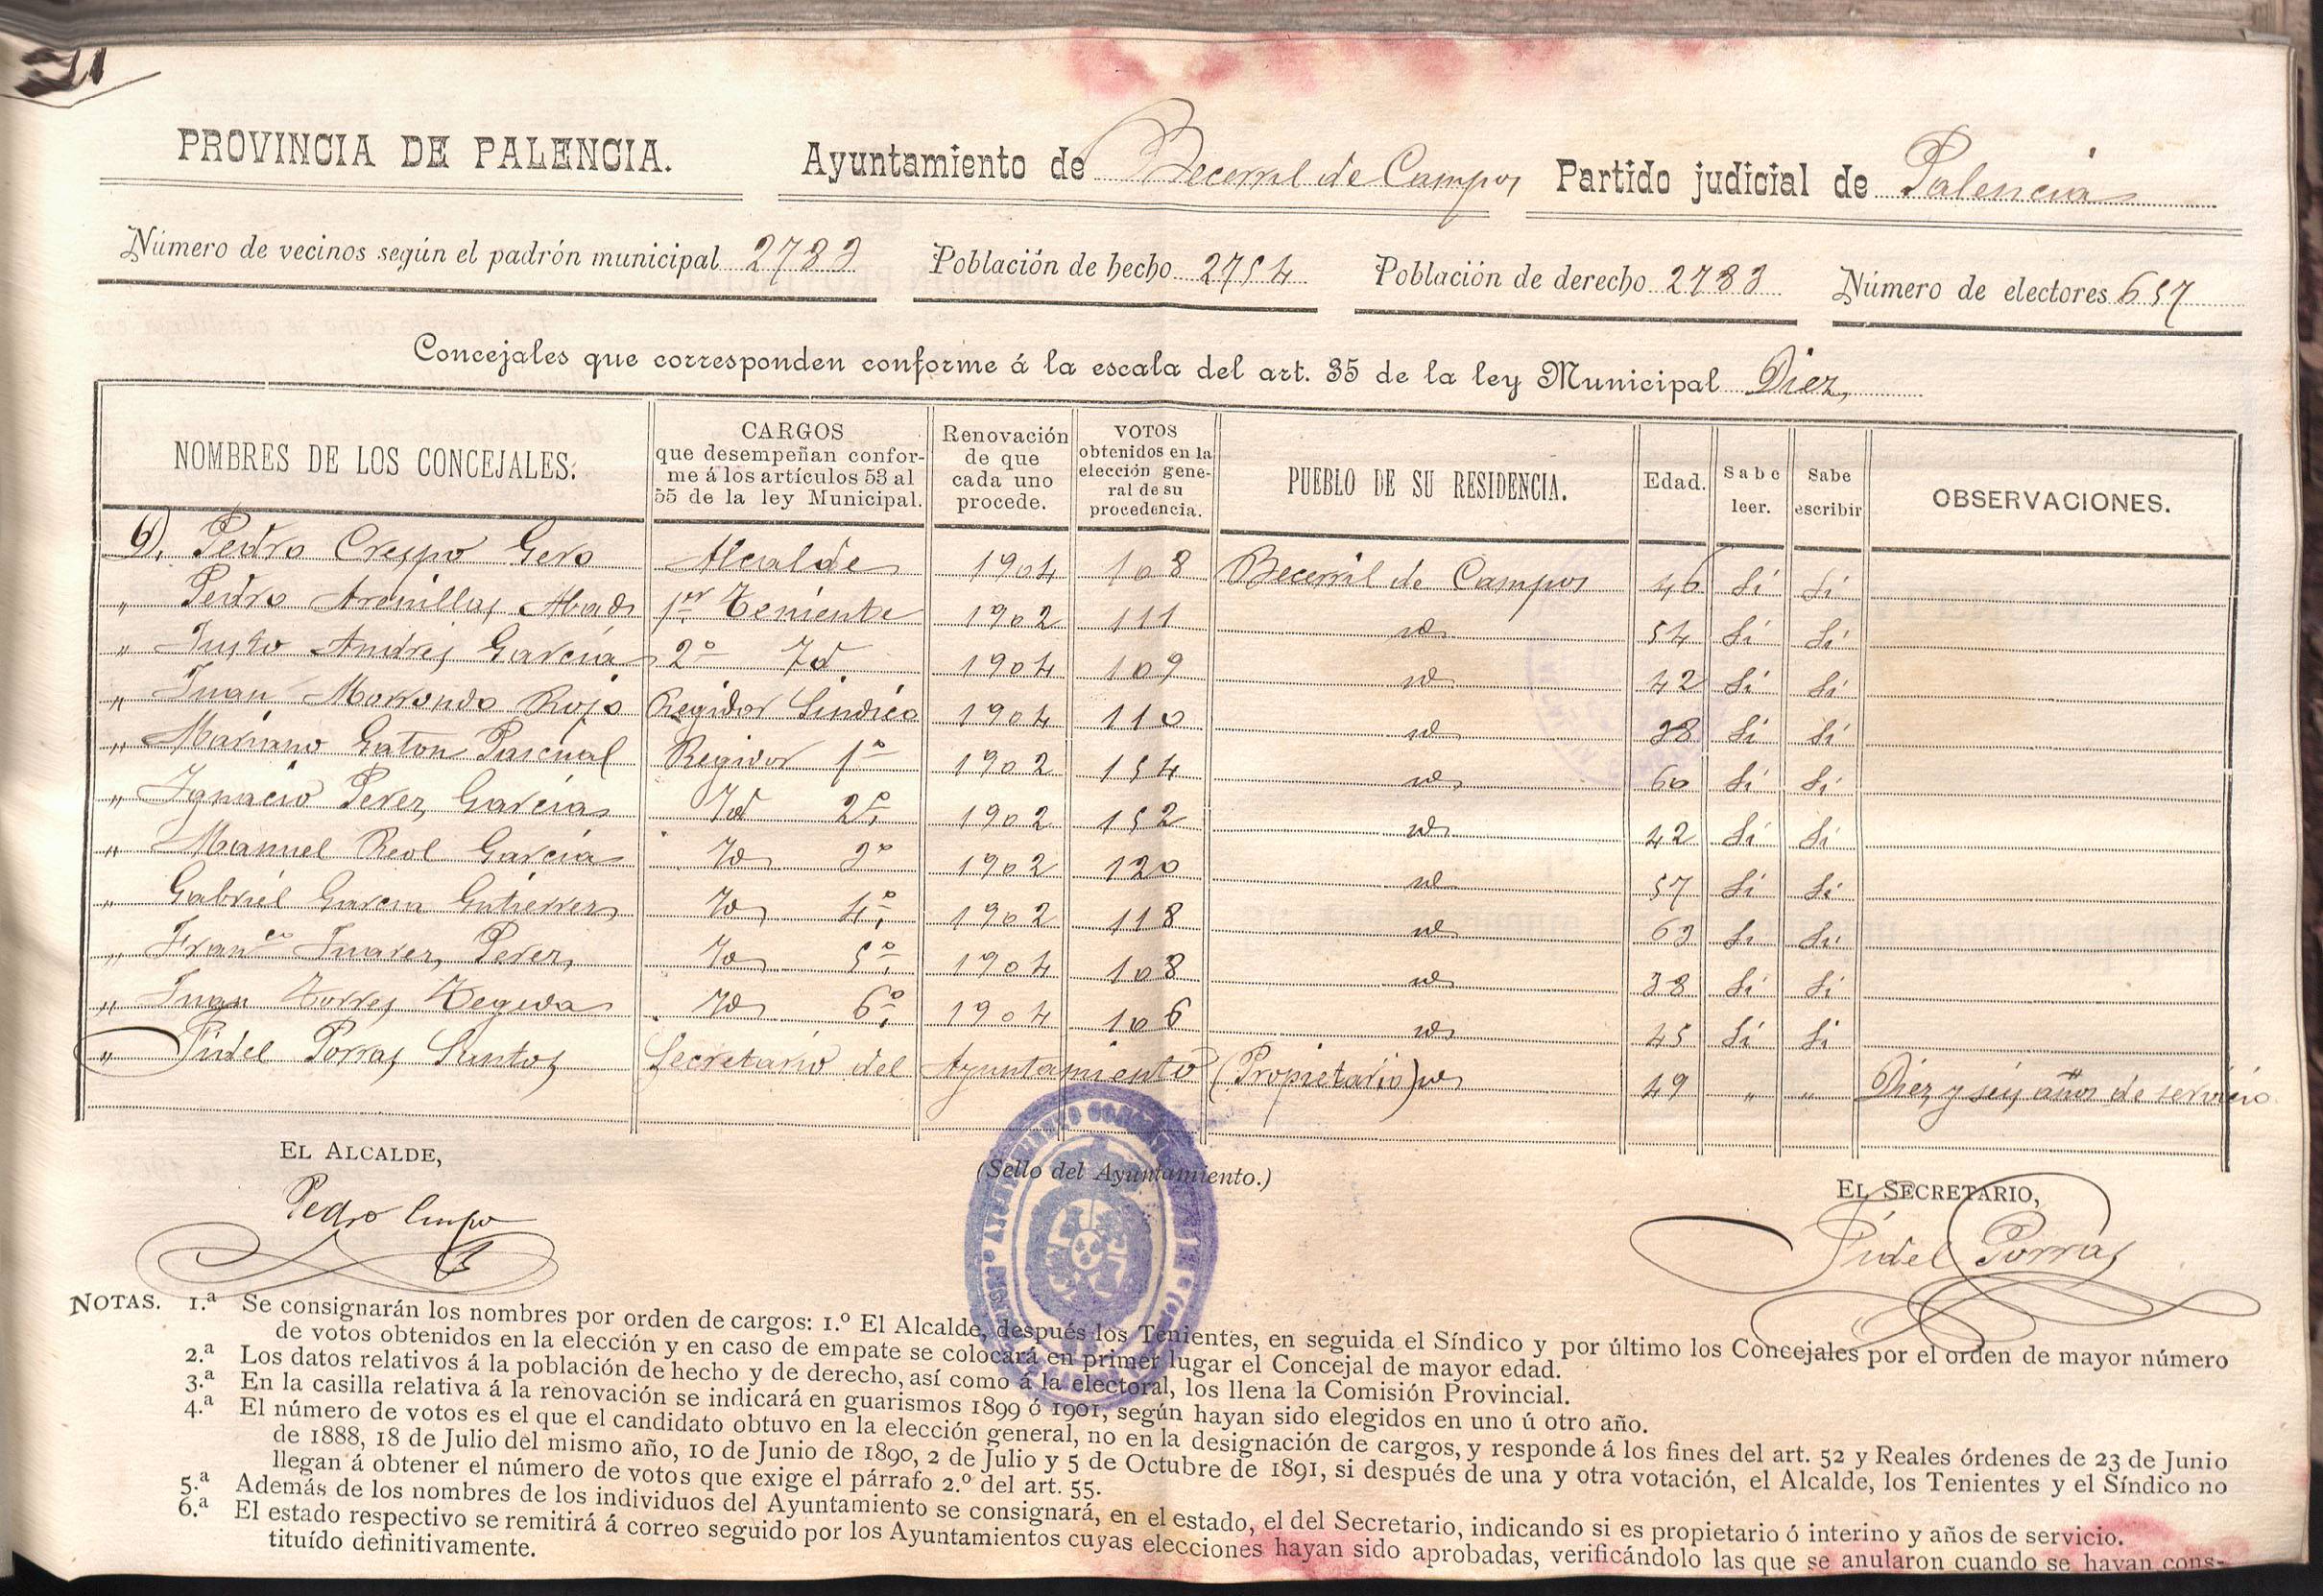 PROVINCIA DE PALENCIA. Ayuntamiento de Becerril de Campos Partido judicial de Palencia
Número de vecinos según el padrón municipal 2783 Población de hecho 2754 Población de derecho 2783 Número de electores 657
Concejales que corresponden conforme á la escala del art. 35 de la ley Municipal Diez
NOMBRES DE LOS CONCEJALES. CARGOS que desempeñan conforme á los artículos 53 al 55 de la ley Municipal. Renovación de que cada uno procede. VOTOS obtenidos en la elección general de su procedencia. PUEBLO DE SU RESIDENCIA. Edad. Sabe leer. Sabe escribir OBSERVACIONES.
Pedro Crespo Gero Alcalde 1904 108 Becerril de Campos 46 Si Si
" Pedro Arenillas Abad 1er Teniente 1902 111 id 54 Si Si
" Justo Andrés García 2º Id 1904 109 id 42 Si Si
" Juan Morrondo Rojo Regidor Sindico 1904 110 id 38 Si Si
" Mariano Gaton Pascual Regidor 1º 1902 154 id 60 Si Si
" Ignacio Perez García Id 2º 1902 152 id 42 Si Si
" Manuel Reol García Id 3º 1902 120 id 57 Si Si
" Gabriel Garcia Gutierrez Id 4º 1902 118 id 63 Si Si
" Franco Juarez Perez Id 5º 1904 108 id 38 Si Si
" Juan Torres Tegida Id 6º 1904 106 id 45 Si Si
" Fidel Porras Santos Secretario del Ayuntamiento (Propietario) id 49 " " Diez y seis años de servicio
EL ALCALDE, (Sello del Ayuntamiento.) EL SECRETARIO,
Pedro Crespo Fidel Porras
NOTAS. 1.ª Se consignarán los nombres por orden de cargos: 1.º El Alcalde, después los Tenientes, en seguida el Síndico y por último los Concejales por el orden de mayor número
de votos obtenidos en la elección y en caso de empate se colocará en primer lugar el Concejal de mayor edad.
2.ª Los datos relativos á la población de hecho y de derecho, así como á la electoral, los llena la Comisión Provincial.
3.ª En la casilla relativa á la renovación se indicará en guarismos 1899 ó 1901, según hayan sido elegidos en uno ú otro año.
4.ª El número de votos es el que el candidato obtuvo en la elección general, no en la designación de cargos, y responde á los fines del art. 52 y Reales órdenes de 23 de Junio
de 1888, 18 de Julio del mismo año, 10 de Junio de 1890, 2 de Julio y 5 de Octubre de 1891, si después de una y otra votación, el Alcalde, los Tenientes y el Síndico no
llegan á obtener el número de votos que exige el párrafo 2.º del art. 55.
5.ª Además de los nombres de los individuos del Ayuntamiento se consignará, en el estado, el del Secretario, indicando si es propietario ó interino y años de servicio.
6.ª El estado respectivo se remitirá á correo seguido por los Ayuntamientos cuyas elecciones hayan sido aprobadas, verificándolo las que se anularon cuando se hayan cons-
tituído definitivamente.